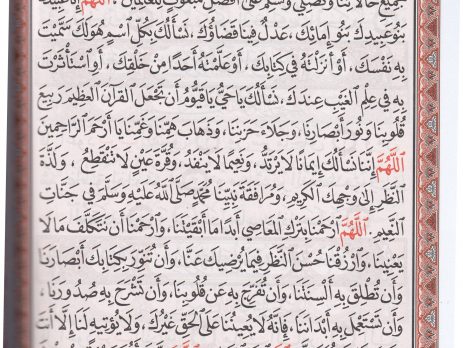 جَمِيعِ حَالَاتِنَا وَنُصَلِّي وَنُسَلِّمُ عَلَى أَفْضَلِ مَبْعُوثٍ لِلْعَالَمِينَ . اَللّٰهُمَّ إِنَّا عَبِيدُكَ
بَنُو عَبِيدِكَ بَنُو إِمَائِكَ ، عَدْلٌ فِينَا قَضَاؤُكَ ، نَسْأَلُكَ بِكُلِّ اسْمٍ هُوَ لَكَ سَمَّيْتَ
بِهِ نَفْسَكَ ، أَوْ أَنْزَلْتَهُ فِي كِتَابِكَ ، أَوْ عَلَّمْتَهُ أَحَدًا مِنْ خَلْقِكَ ، أَوِ اسْتَأْثَرْتَ
بِهِ فِي عِلْمِ الْغَيْبِ عِنْدَكَ ، نَسْأَلُكَ يَا حَيُّ يَا قَيُّومُ أَنْ تَجْعَلَ الْقُرْآنَ الْعَظِيمَ رَبِيعَ
قُلُوبِنَا وَنُورَ أَبْصَارِنَا ، وَجَلَاءَ حُزْنِنَا ، وَذَهَابَ هَمِّنَا وَغَمِّنَا يَا أَرْحَمَ الرَّاحِمِينَ
اَللّٰهُمَّ إِنَّنَا نَسْأَلُكَ إِيمَانًا لَا يَرْتَدُّ ، وَنَعِيمًا لَا يَنْفَدُ ، وَقُرَّةَ عَيْنٍ لَا تَنْقَطِعُ ، وَلَذَّةَ
النَّظَرِ إِلَى وَجْهِكَ الْكَرِيمِ ، وَمُرَافَقَةَ نَبِيِّنَا مُحَمَّدٍ صَلَّى اللهُ عَلَيْهِ وَسَلَّمَ فِي جَنَّاتِ
النَّعِيمِ . اَللّٰهُمَّ ارْحَمْنَا بِتَرْكِ الْمَعَاصِي أَبَدًا مَا أَبْقَيْتَنَا ، وَارْحَمْنَا أَنْ نَتَكَلَّفَ مَا لَا
يَعْنِينَا ، وَارْزُقْنَا حُسْنَ النَّظَرِ فِيمَا يُرْضِيكَ عَنَّا ، وَأَنْ تُنَوِّرَ بِكِتَابِكَ أَبْصَارَنَا
وَأَنْ تُطْلِقَ بِهِ أَلْسِنَتَنَا ، وَأَنْ تُفَرِّجَ بِهِ عَنْ قُلُوبِنَا ، وَأَنْ تَشْرَحَ بِهِ صُدُورَنَا ،
وَأَنْ تَسْتَعْمِلَ بِهِ أَبْدَانَنَا ، فَإِنَّهُ لَا يُعِينُنَا عَلَى الْحَقِّ غَيْرُكَ ، وَلَا يُؤْتِيهِ لَنَا إِلَّا أَنْتَ